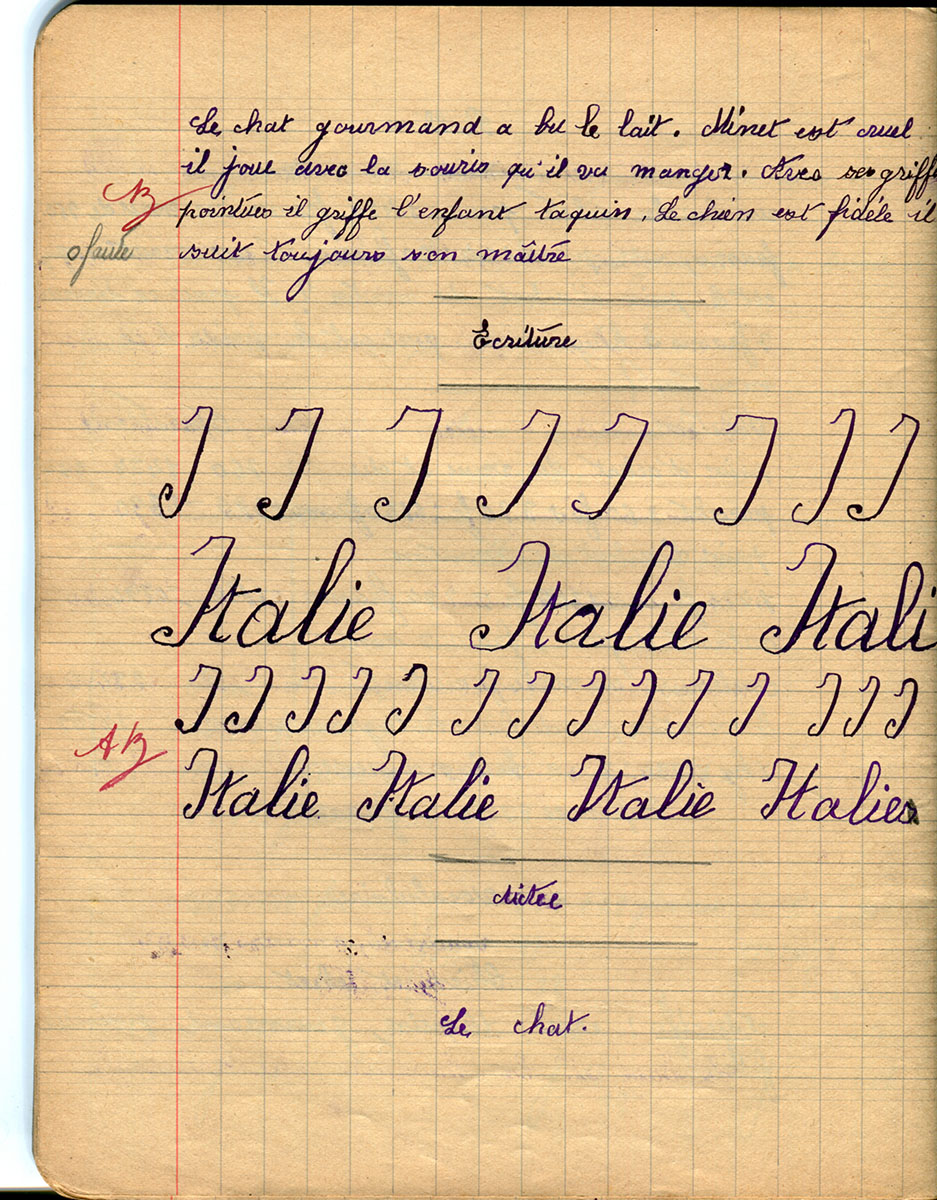 Le chat gourmand a bu le lait. Minet est cruel
il joue avec la souris qu'il va manger. Avec ses griffe
B pointues il griffe l'enfant taquin. Le chien est fidéle il
0 faute suit toujours son maître
Ecriture
I I I I I I I I
Italie Italie Itali
I I I I I I I I I I I I I I
AB
Italie Italie Italie Italie
dictée
Le chat.